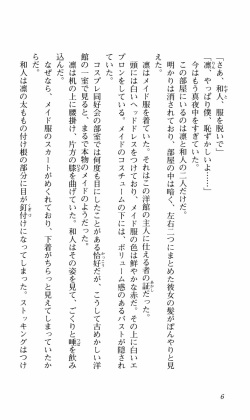 「さあ、和人、服を脱いで」
「凛、やっぱり僕、恥ずかしいよ……」
今はもう真夜中をすぎていた。
この部屋にいるのは凛と和人の二人だけだ。
明かりは消されており、部屋の中は暗く、左右二つにまとめた彼女の髪がぼんやりと見
えた。
凛はメイド服を着ていた。それはこの洋館の主人に仕える者の証だった。
頭には白いヘッドドレスをつけており、メイド服の色は鮮やかな赤だ。その上に白いエ
プロンをしている。メイドのコスチュームの下には、ボリューム感のあるバストが隠され
ていた。
コスプレ同好会の部室では何度も目にしたことがある恰好だが、こうして古めかしい洋
館の一室で見ると、まるで本物のメイドのようだった。
凛は机の上に腰掛け、片方の膝を曲げていた。和人はその姿を見て、ごくりと唾を飲み
込んだ。
なぜなら、メイド服のスカートがめくれており、下着がちらっと見えてしまっていたか
らだ。
和人は凛の太ももの付け根の部分に目が釘付けになってしまった。ストッキングはつけ
6